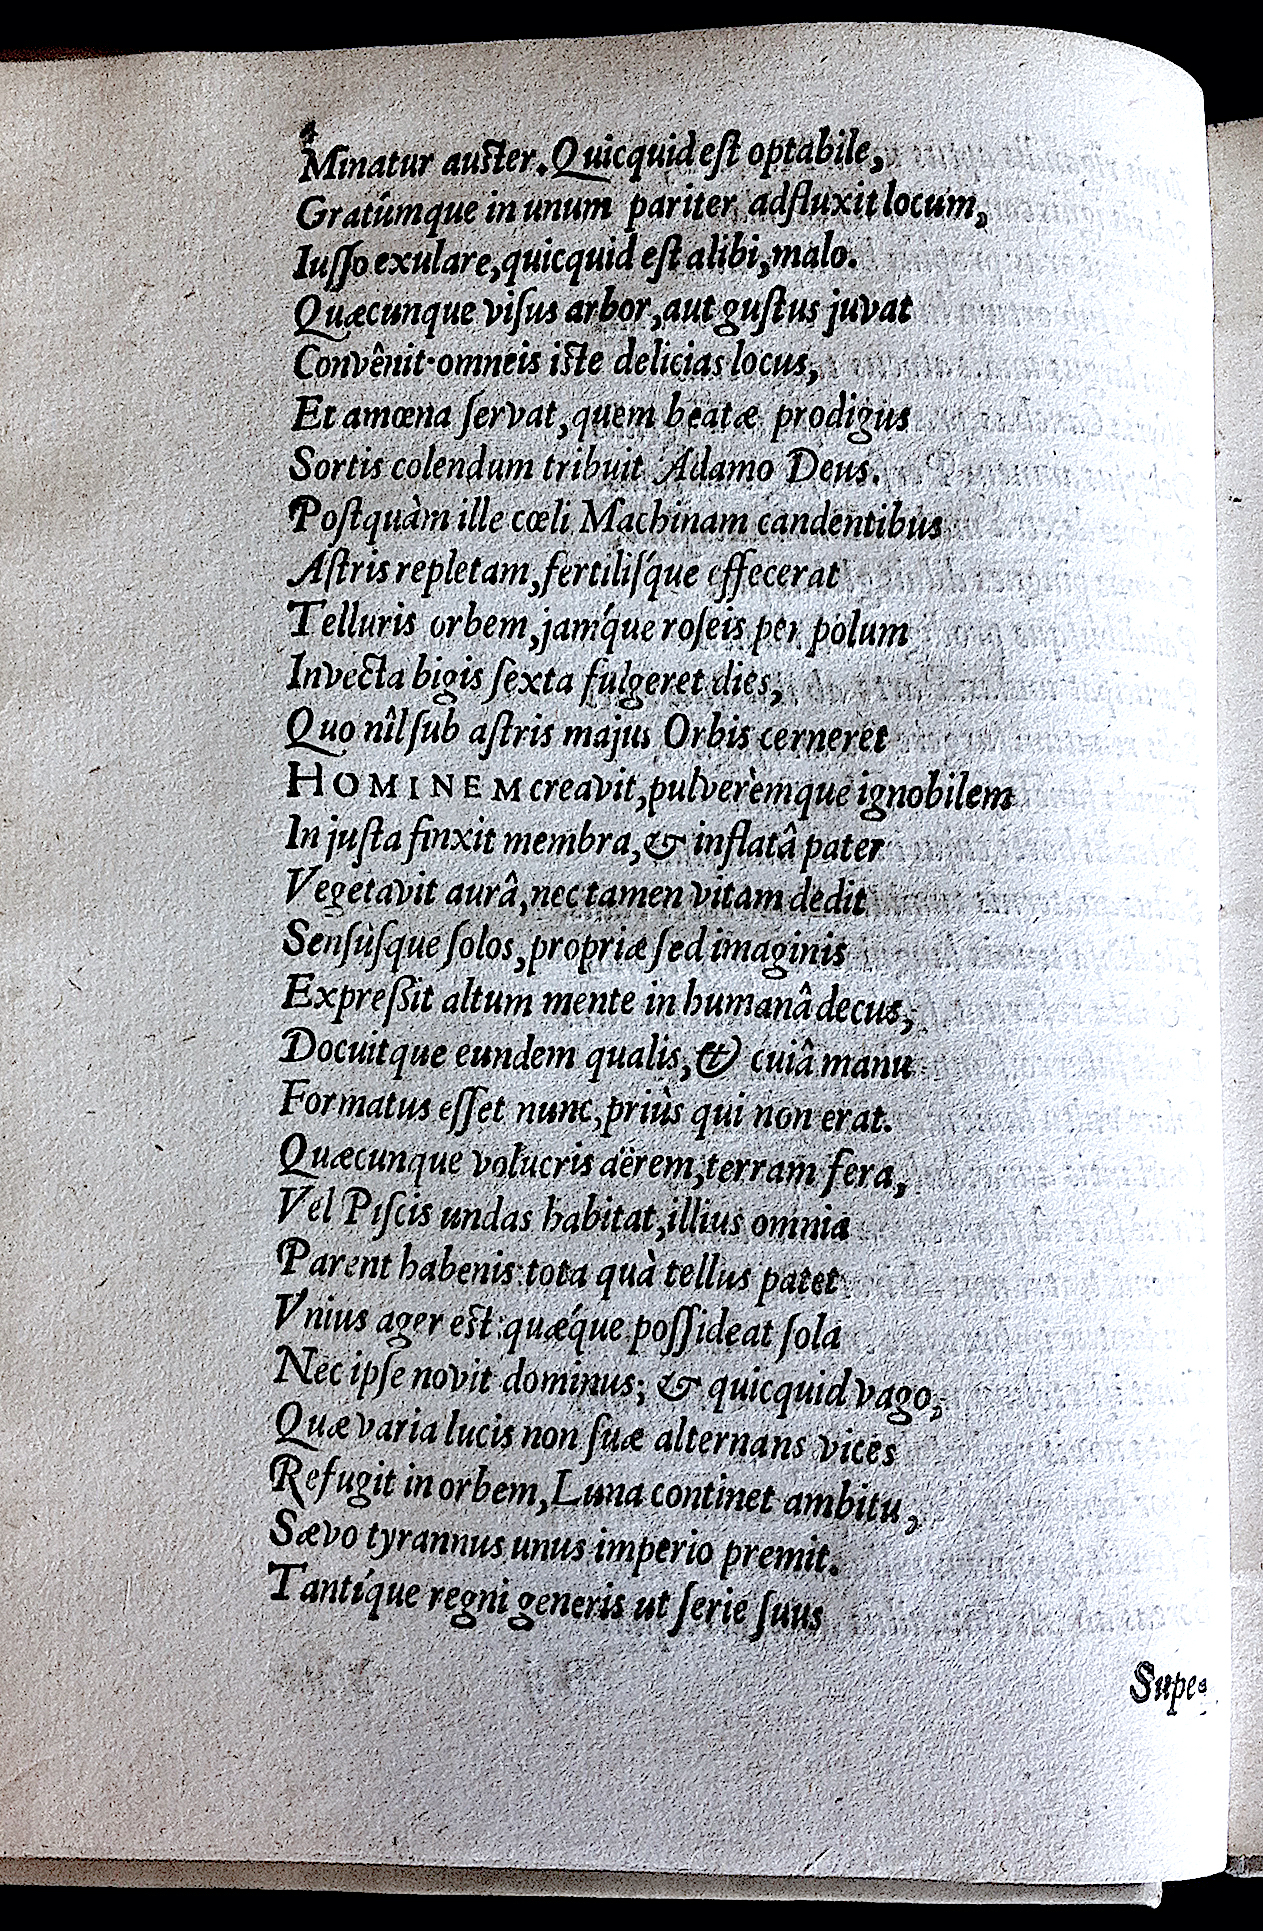 4
Minatur auſter. Quicquid eſt optabile,
Gratúmque in unum pariter adfluxit locum,
Iuſſo exulare, quicquid eſt alibi, malo.
Quæcunque viſus arbor, aut guſtus juvat
Convênit· omneis iſte delicias locus,
Et amœna ſervat, quem beatæ prodigus
Sortis colendum tribuit Adamo Deus.
Poſtquàm ille cœli Machinam candentibus
Aſtris repletam, fertiliſq́ue effecerat
Telluris orbem, jamq́ue roſeis per polum
Invecta bigis ſexta fulgeret dies,
Quo nîl ſub aſtris majus Orbis cerneret
HOMINEM creavit, pulverèmque ignobilem
In juſta finxit membra, & inflatâ pater
Vegetavit aurâ, nec tamen vitam dedit
Senſùſque ſolos, propriæ ſed imaginis
Expreſſit altum mente in humanâ decus,
Docuitque eundem qualis, & cuiâ manu
Formatus eſſet nunc, priùs qui non erat.
Quæcunque volucris aërem, terram fera,
Vel Piſcis undas habitat, illius omnia
Parent habenis: tota quà tellus patet
Vnius ager eſt: quæq́ue poſſideat ſola
Nec ipſe novit dominus; & quicquid vago,
Quæ varia lucis non ſuæ alternans vices
Refugit in orbem, Luna continet ambitu,
Sævo tyrannus unus imperio premit.
Tantíque regni generis ut ſerie ſuus
Supe-